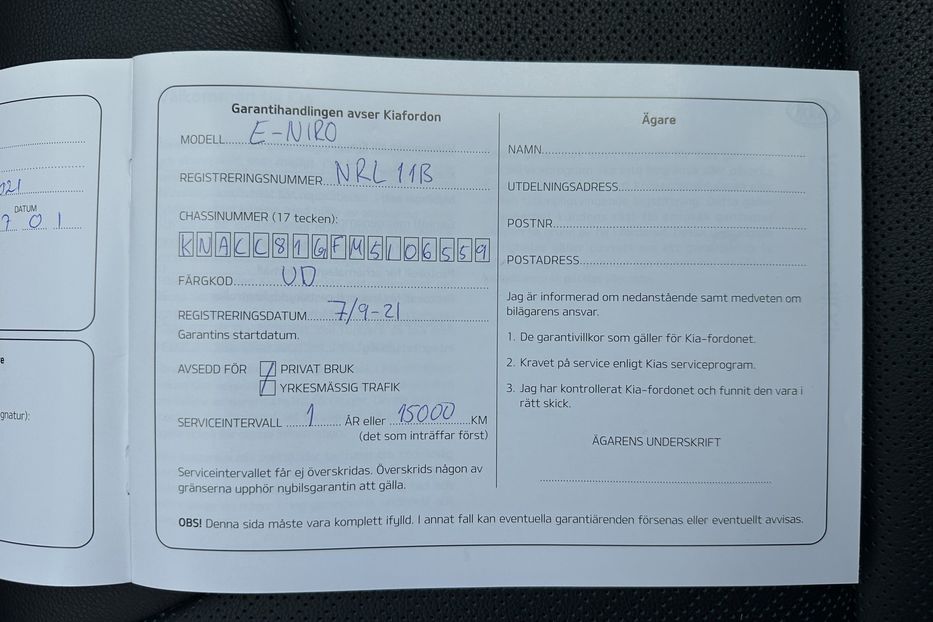 021
DATUM
7 0 1
e
gnatur):
Garantihandlingen avser Kiafordon
MODELL E-NIRO
REGISTRERINGSNUMMER NRL 11B
CHASSINUMMER (17 tecken):
KNACC81GFM5106559
FÄRGKOD UD
REGISTRERINGSDATUM 7/9-21
Garantins startdatum.
AVSEDD FÖR PRIVAT BRUK
YRKESMÄSSIG TRAFIK
SERVICEINTERVALL 1 ÅR eller 15000 KM
(det som inträffar först)
Serviceintervallet får ej överskridas. Överskrids någon av
gränserna upphör nybilsgarantin att gälla.
Ägare
NAMN
UTDELNINGSADRESS
POSTNR
POSTADRESS
Jag är informerad om nedanstående samt medveten om
bilägarens ansvar.
1. De garantivillkor som gäller för Kia-fordonet.
2. Kravet på service enligt Kias serviceprogram.
3. Jag har kontrollerat Kia-fordonet och funnit den vara i
rätt skick.
ÄGARENS UNDERSKRIFT
OBS! Denna sida måste vara komplett ifylld. I annat fall kan eventuella garantiärenden försenas eller eventuellt avvisas.